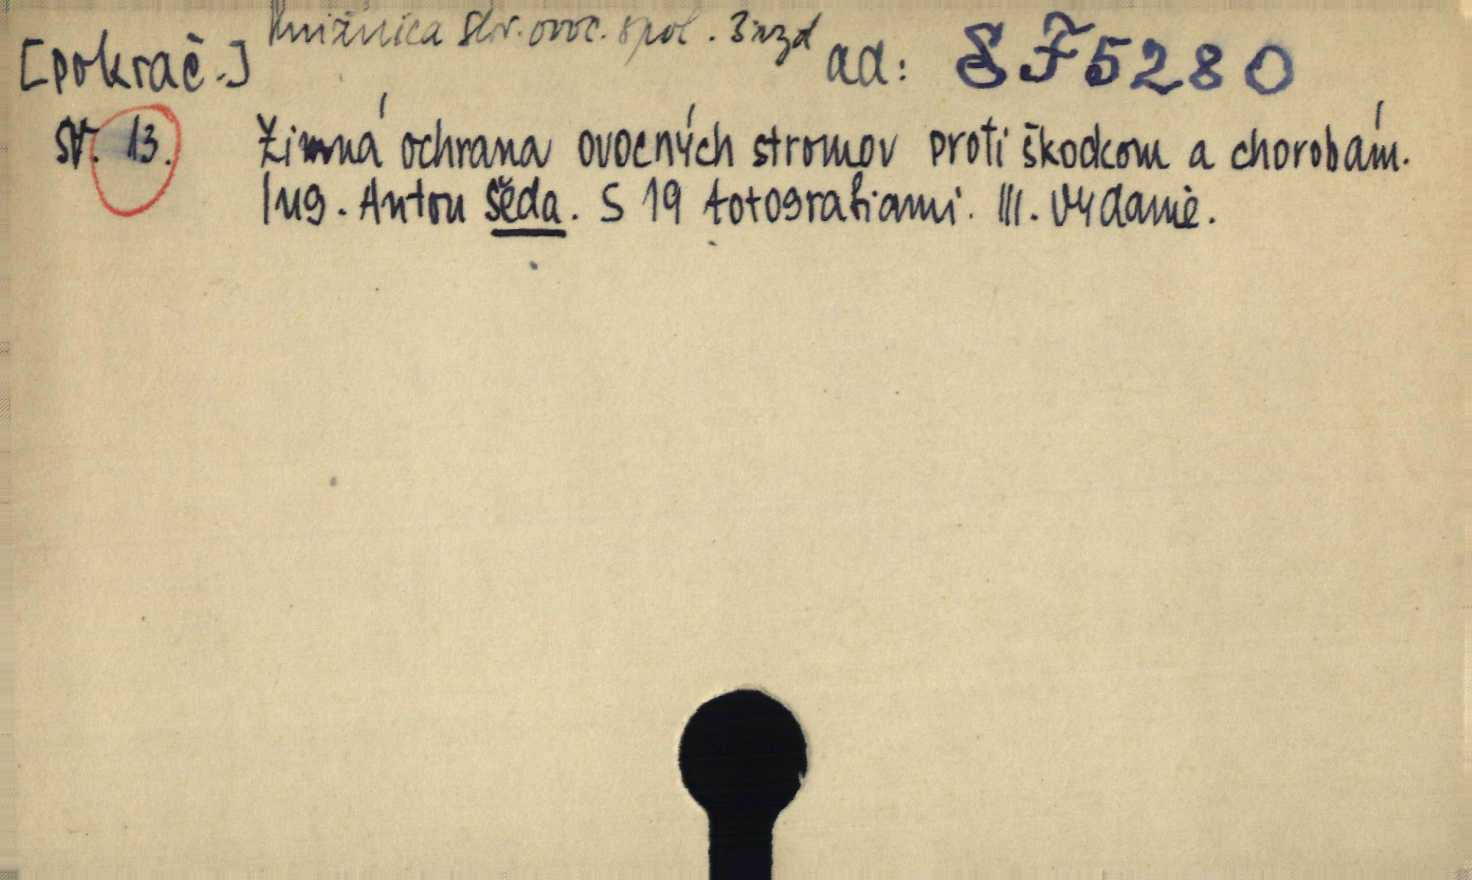 Knižnica Slov. ovoc. spol.
[pokrač.] ad: SF5280
sv. 13. Zimná ochrana ovocných stromov proti škodcom a chorobám.
Ing. Anton Šeda. S 19 fotografiami. III. vydanie.